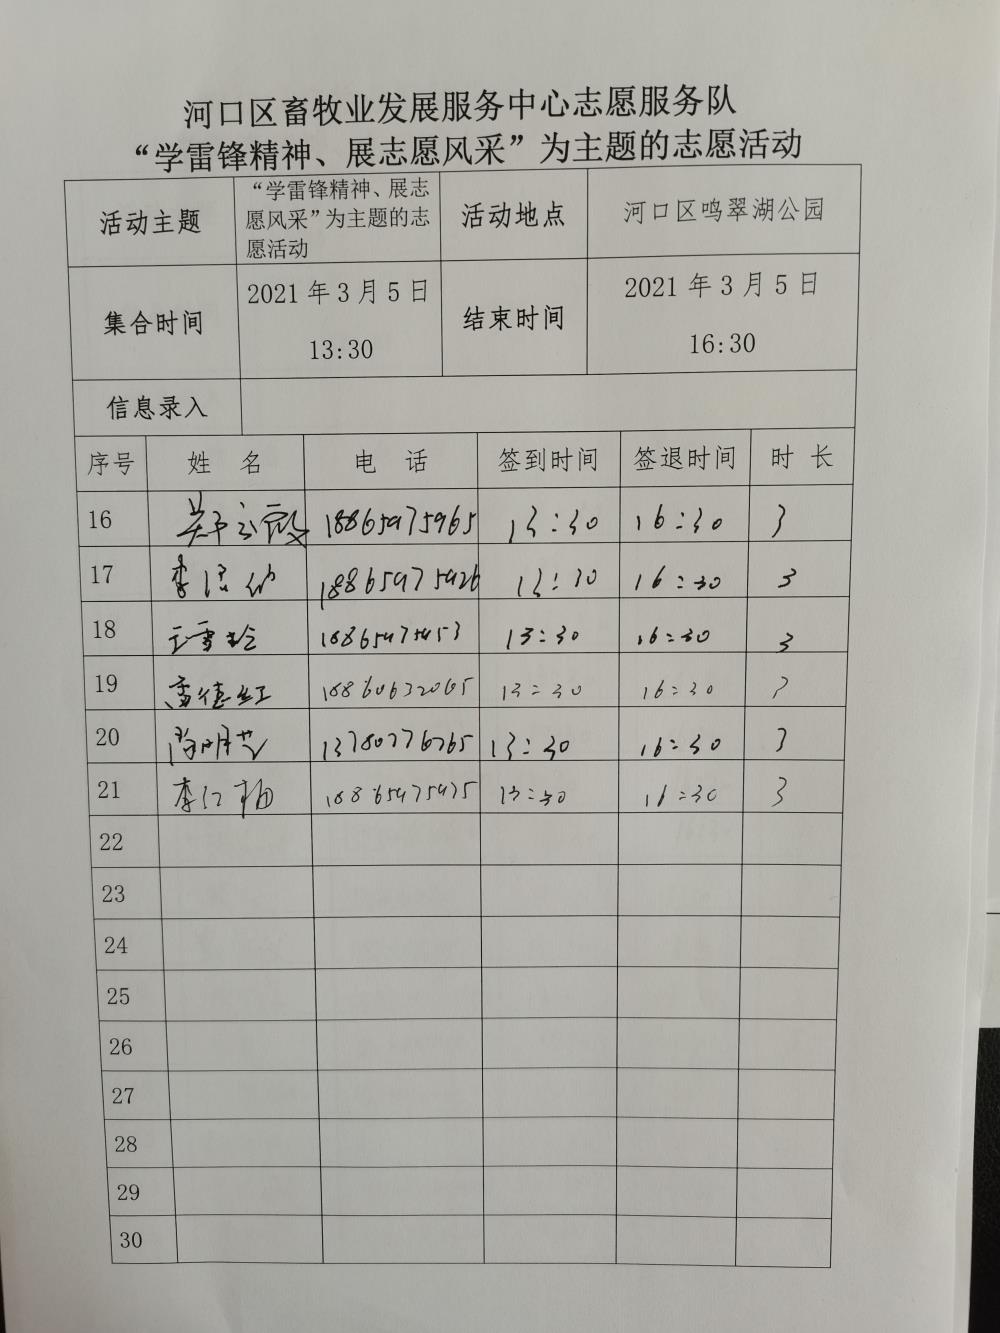 河口区畜牧业发展服务中心志愿服务队
“学雷锋精神、展志愿风采”为主题的志愿活动
活动主题 “学雷锋精神、展志愿风采”为主题的志愿活动 活动地点 河口区鸣翠湖公园
集合时间 2021年3月5日 13:30 结束时间 2021年3月5日 16:30
信息录入
序号 姓 名 电 话 签到时间 签退时间 时 长
16 18865975965 13:30 16:30 3
17 18865975926 13:30 16:30 3
18 王雪玲 13:30 16:30 3
19 13:30 16:30 3
20 13780776765 13:30 16:30 3
21 18865975975 13:30 16:30 3
22
23
24
25
26
27
28
29
30